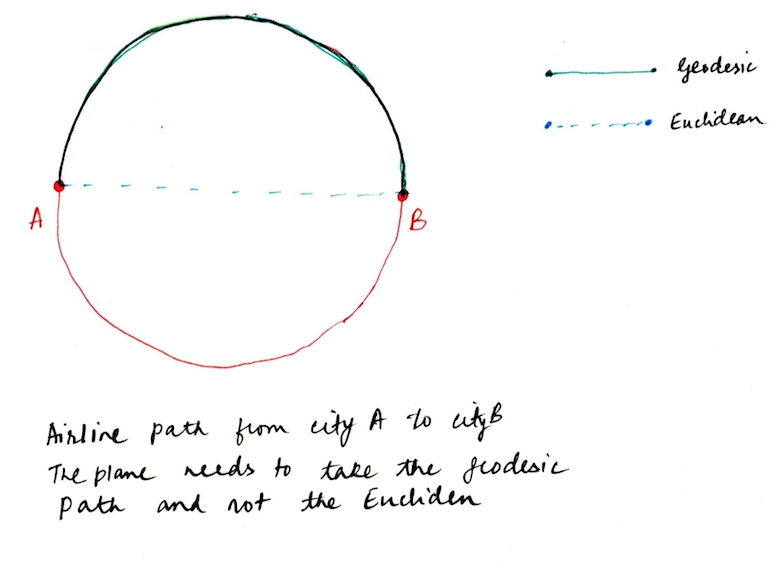 Geodesic
Euclidean
A
B
Airline path from city A to city B
The plane needs to take the geodesic
Path and not the Eucliden